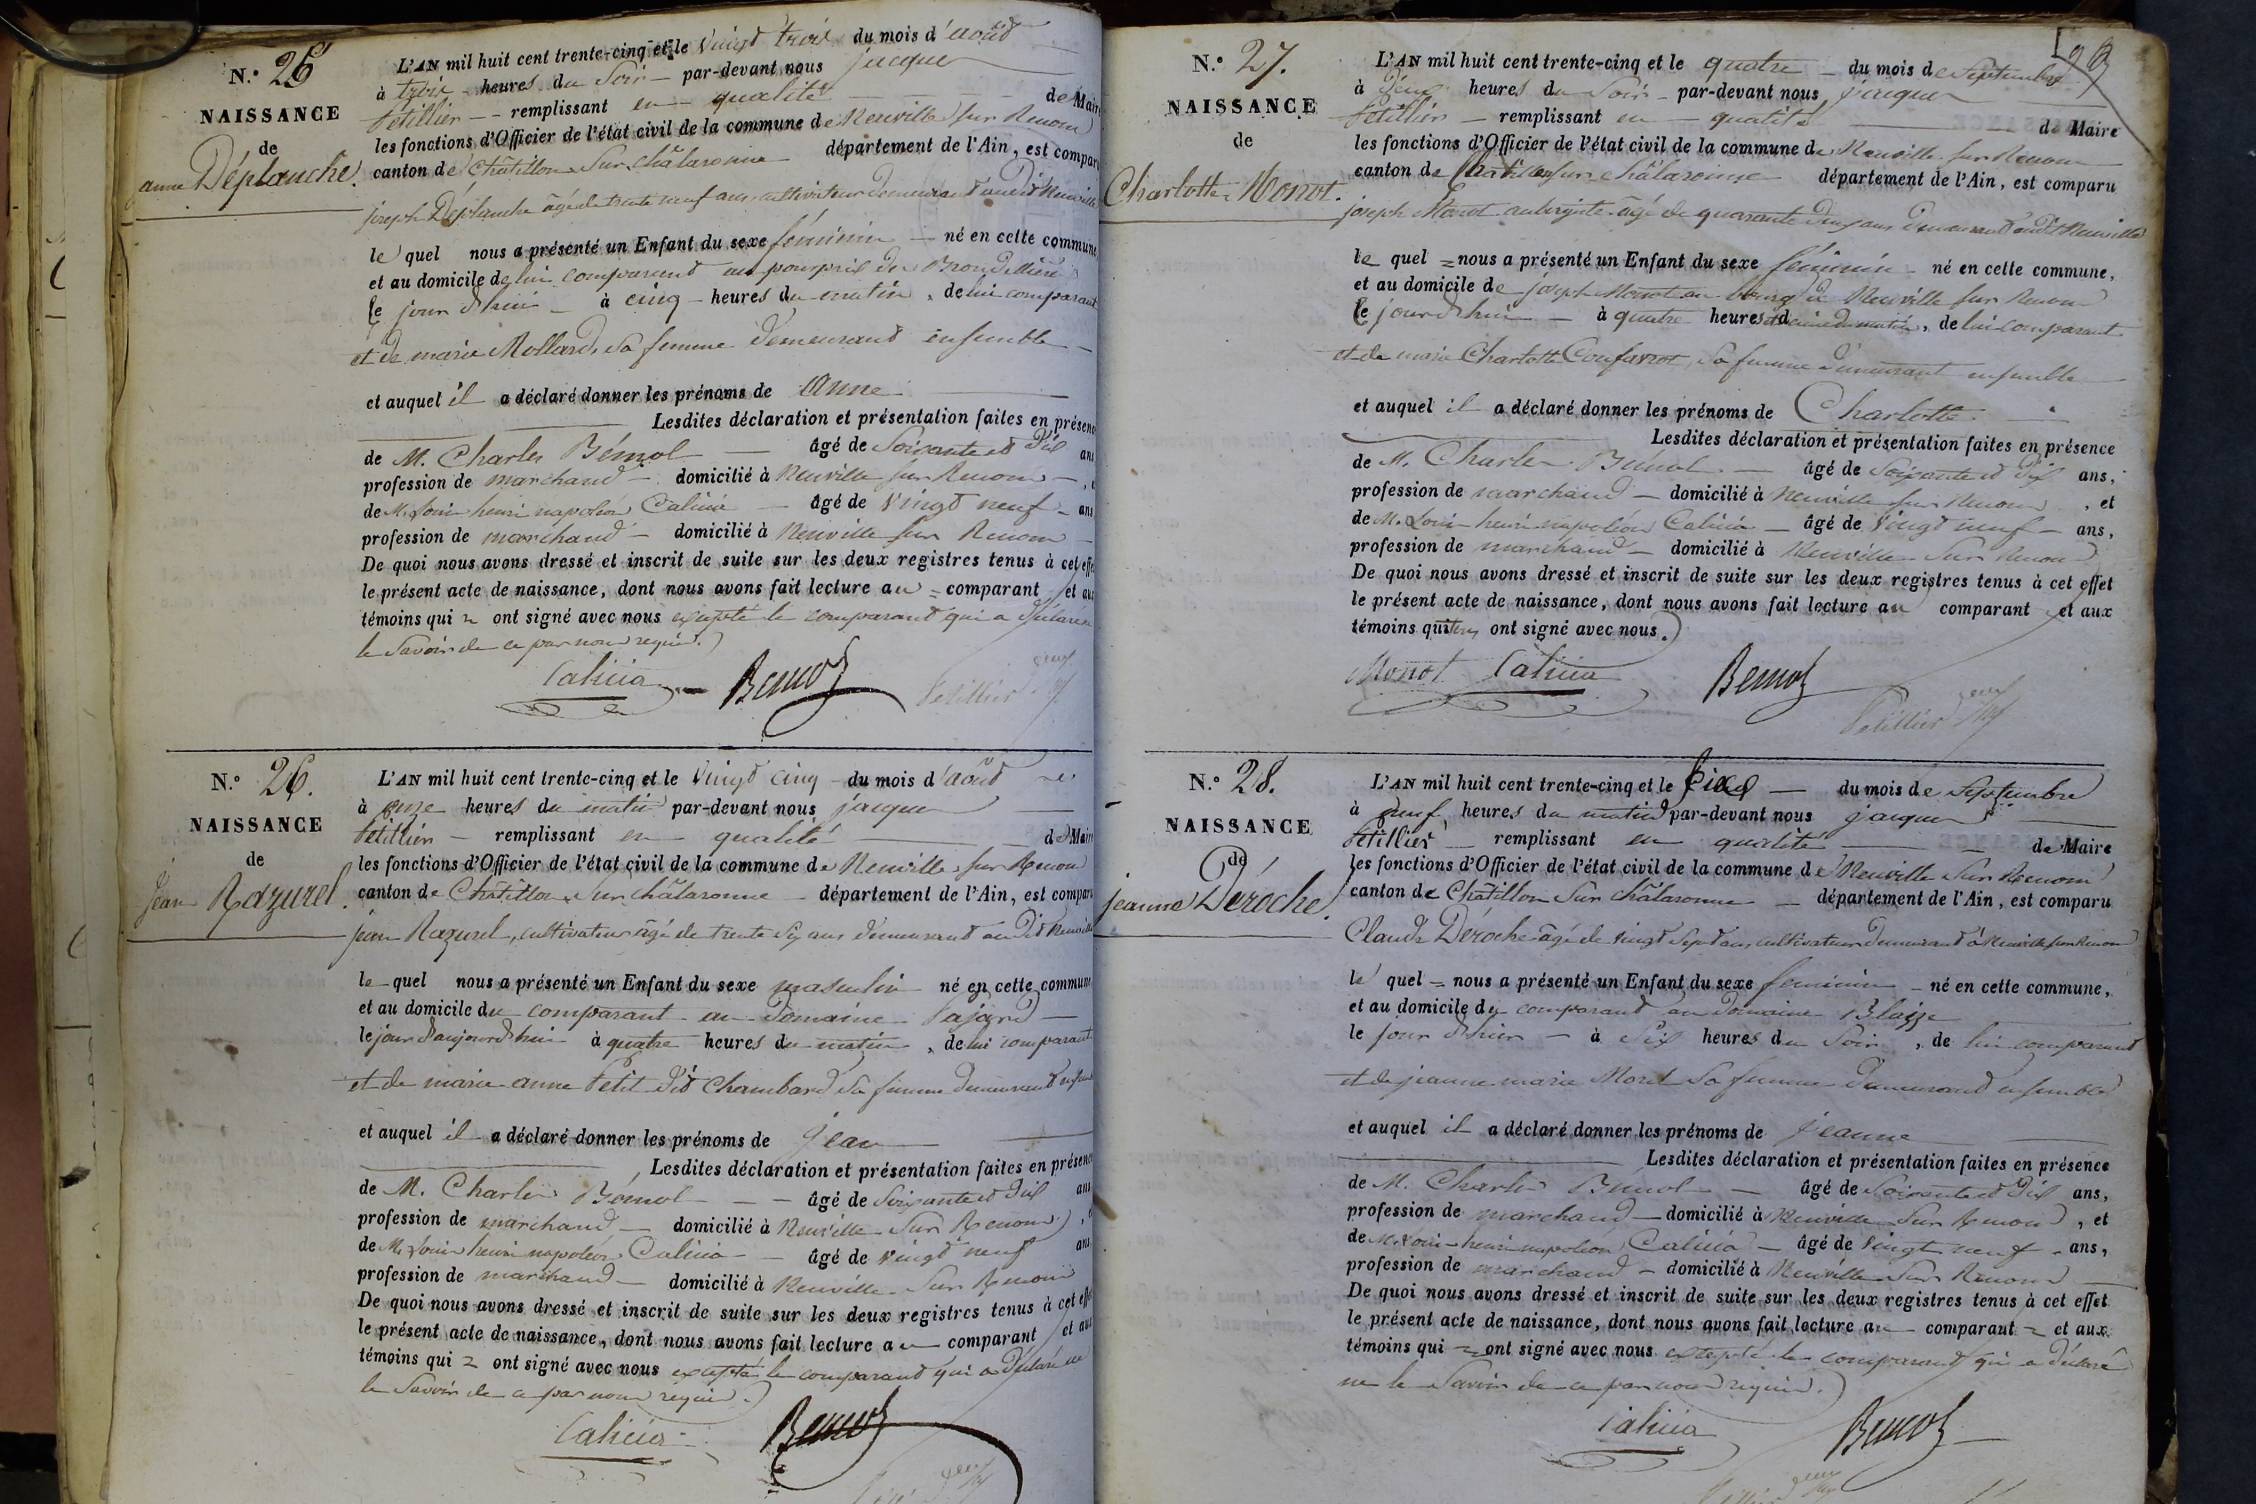 N.° 25
NAISSANCE
de
anne Déplanche.
L'AN mil huit cent trente-cinq et le Vingt trois du mois d'août
à trois heures du Soir par-devant nous jacques
Petillier remplissant en qualité de Maire
les fonctions d'Officier de l'état civil de la commune de Neuville sur Renom
canton de Châtillon Sur Châlaronne département de l'Ain, est comparu
joseph Déplanche âgé de trente neuf ans cultivateur demeurant audit Neuville
le quel nous a présenté un Enfant du sexe féminin né en cette commune
et au domicile de lui comparant au pourpris de
le jour d'hui à cinq heures du matin, de lui comparant
et de marie Mollard, Sa femme demeurant ensemble
et auquel il a déclaré donner les prénoms de Anne
Lesdites déclaration et présentation faites en présence
de M. Charles Bémol âgé de Soixante et Dix ans
profession de marchand domicilié à Neuville sur Renom
de M. Louis henri napoléon Calicia âgé de Vingt neuf ans
profession de marchand domicilié à Neuville sur Renom
De quoi nous avons dressé et inscrit de suite sur les deux registres tenus à cet effet
le présent acte de naissance, dont nous avons fait lecture au comparant et aux
témoins qui ont signé avec nous excepté le comparant qui a déclaré ne
le Savoir de ce par nous requis.
Calicia Bemol Petillier
N.° 26.
NAISSANCE
de
jean Razurel.
L'AN mil huit cent trente-cinq et le Vingt cinq du mois d'août
à onze heures du matin par-devant nous jacques
Petillier remplissant en qualité de Maire
les fonctions d'Officier de l'état civil de la commune de Neuville sur Renom
canton de Châtillon Sur Châlaronne département de l'Ain, est comparu
jean Razurel, cultivateur âgé de trente Six ans demeurant au Dit Neuville
le quel nous a présenté un Enfant du sexe masculin né en cette commune
et au domicile du comparant au Domaine Pajard
le jour d'aujourd'hui à quatre heures du matin, de lui comparant
et de marie anne Petit Dit Chambard Sa femme demeurant ensemble
et auquel il a déclaré donner les prénoms de Jean
Lesdites déclaration et présentation faites en présence
de M. Charles Bémol âgé de Soixante et Dix ans
profession de marchand domicilié à Neuville Sur Renom
de M. Louis henri napoléon Calicia âgé de Vingt neuf ans
profession de marchand domicilié à Neuville Sur Renom
De quoi nous avons dressé et inscrit de suite sur les deux registres tenus à cet effet
le présent acte de naissance, dont nous avons fait lecture au comparant et aux
témoins qui ont signé avec nous excepté le comparant qui a Déclaré ne
le Savoir de ce par nous requis.
Calicia Bemol
N.° 27.
NAISSANCE
de
Charlotte Monot.
L'AN mil huit cent trente-cinq et le quatre du mois de Septembre
à Deux heures du Soir par-devant nous jacques
Petillier remplissant en qualité de Maire
les fonctions d'Officier de l'état civil de la commune de Neuville sur Renom
canton de Chatillon sur Châlaronne département de l'Ain, est comparu
joseph Monot aubergiste âgé de quarante deux ans Demeurant audit Neuville
le quel nous a présenté un Enfant du sexe féminin né en cette commune,
et au domicile de joseph Monot au bourg de Neuville sur Renom
le jourd'hui à quatre heures et demie du matin, de lui comparant
et de marie Charlotte Confavrot, Sa femme demeurant ensemble
et auquel il a déclaré donner les prénoms de Charlotte
Lesdites déclaration et présentation faites en présence
de M. Charles Bémol âgé de Soixante et Dix ans,
profession de marchand domicilié à Neuville sur Renom, et
de M. Louis henri napoléon Calicia âgé de Vingt neuf ans,
profession de marchand domicilié à Neuville Sur Renom
De quoi nous avons dressé et inscrit de suite sur les deux registres tenus à cet effet
le présent acte de naissance, dont nous avons fait lecture au comparant et aux
témoins qui tous ont signé avec nous.
Monot Calicia Bemol
Petillier
N.° 28.
NAISSANCE
de
jeanne Déroche.
L'AN mil huit cent trente-cinq et le Six du mois de Septembre
à neuf heures du matin par-devant nous jacques
Petillier remplissant en qualité de Maire
les fonctions d'Officier de l'état civil de la commune de Neuville Sur Renom
canton de Châtillon Sur Châlaronne département de l'Ain, est comparu
Claude Déroche âgé de vingt Sept ans cultivateur Demeurant à Neuville sur Renom
le quel nous a présenté un Enfant du sexe feminin né en cette commune,
et au domicile du comparant au Domaine Blaize
le Jour d'hier à Six heures du Soir, de lui comparant
et de jeanne marie Morel Sa femme Demeurant ensemble
et auquel il a déclaré donner les prénoms de Jeanne
Lesdites déclaration et présentation faites en présence
de M. Charles Bemol âgé de Soixante et Dix ans,
profession de marchand domicilié à Neuville Sur Renom, et
de M. Louis henri napoléon Calicia âgé de Vingt neuf ans,
profession de marchand domicilié à Neuville Sur Renom
De quoi nous avons dressé et inscrit de suite sur les deux registres tenus à cet effet
le présent acte de naissance, dont nous avons fait lecture au comparant et aux
témoins qui ont signé avec nous excepté le comparant qui a déclaré
ne le Savoir de ce par nous requis.
Calicia Bemol